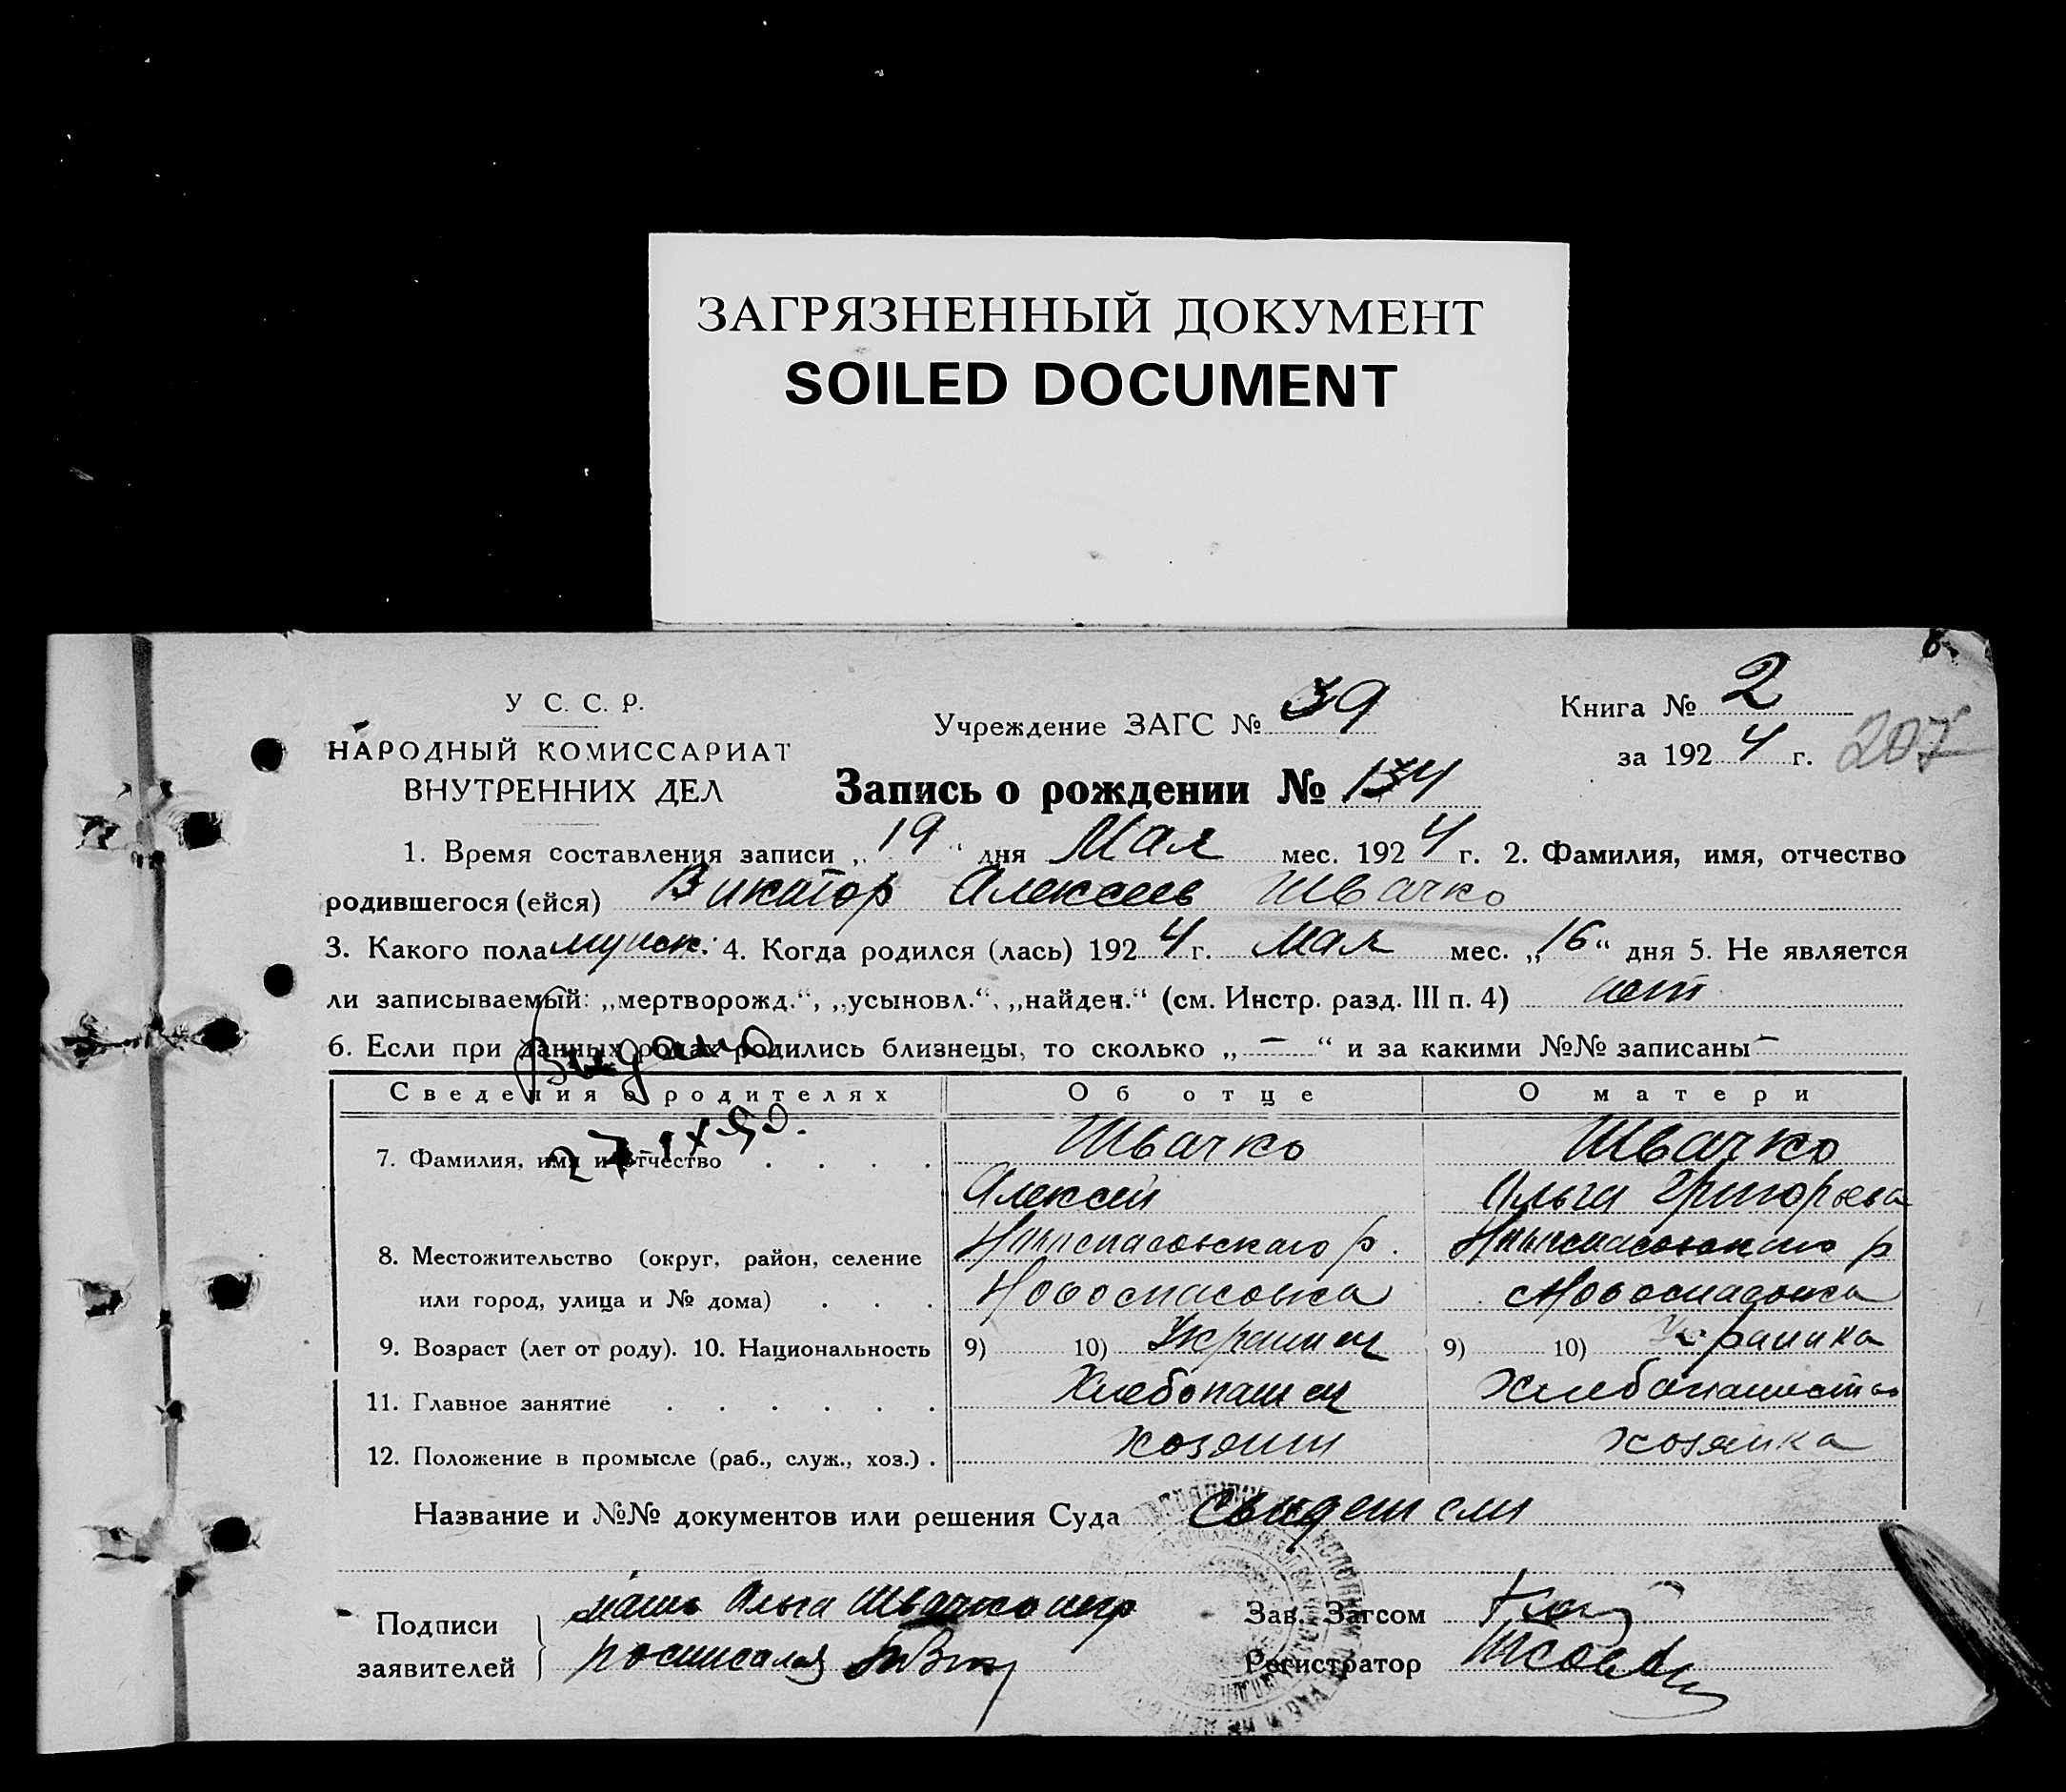 ЗАГРЯЗНЕННЫЙ ДОКУМЕНТ
SOILED DOCUMENT
У С. С. Р.
НАРОДНЫЙ КОМИССАРИАТ
ВНУТРЕННИХ ДЕЛ
Учреждение ЗАГС № 39
Книга № 2
за 1924 г.
207
Запись о рождении № 134
1. Время составления записи „19“ дня Мая мес. 1924 г. 2. Фамилия, имя, отчество
родившегося (ейся) Викатор Алексеев Швачко
3. Какого пола мужск. 4. Когда родился (лась) 1924 г. Мая мес. „16“ дня 5. Не является
ли записываемый: „мертворожд.“, „усыновл.“, „найден.“ (см. Инстр. разд. III п. 4) нет
6. Если при данных родах родились близнецы, то сколько „—“ и за какими №№ записаны —
Выдано
27-IX-50.
Сведения о родителях Об отце О матери
7. Фамилия, имя и отчество . . . . Швачко Швачко
Алексей Ольга Григорьева
8. Местожительство (округ, район, селение р. р
или город, улица и № дома) . . . Новоспасовка Новоспасовка
9. Возраст (лет от роду). 10. Национальность 9) 10) Украинец 9) 10) Украинка
11. Главное занятие . . . . . . Хлебопашец Хлебопашество
12. Положение в промысле (раб., служ., хоз.) . хозяин хозяйка
Название и №№ документов или решения Суда свидетели
Подписи
заявителей
мать Ольга Швачко негр
росписалась
Зав. Загсом
Регистратор